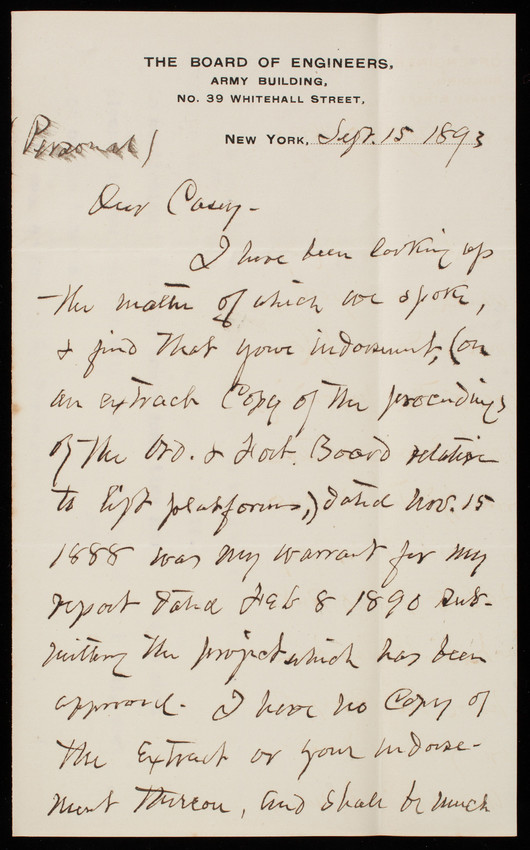 THE BOARD OF ENGINEERS,
ARMY BUILDING,
No. 39 WHITEHALL STREET,
(Personal)
NEW YORK, Sept. 15 1893
Dear Casey -
I have been looking up
the matter of which we spoke,
& find that your indorsement, (on
an extract Copy of the proceedings
of the Ord. & Fort. Board relative
to lift platforms,) dated Nov. 15
1888 was my warrant for my
report dated Feb 8 1890 sub-
mitting the project which has been
approved. I have no Copy of
the Extract or your indorse-
ment thereon, and shall be much